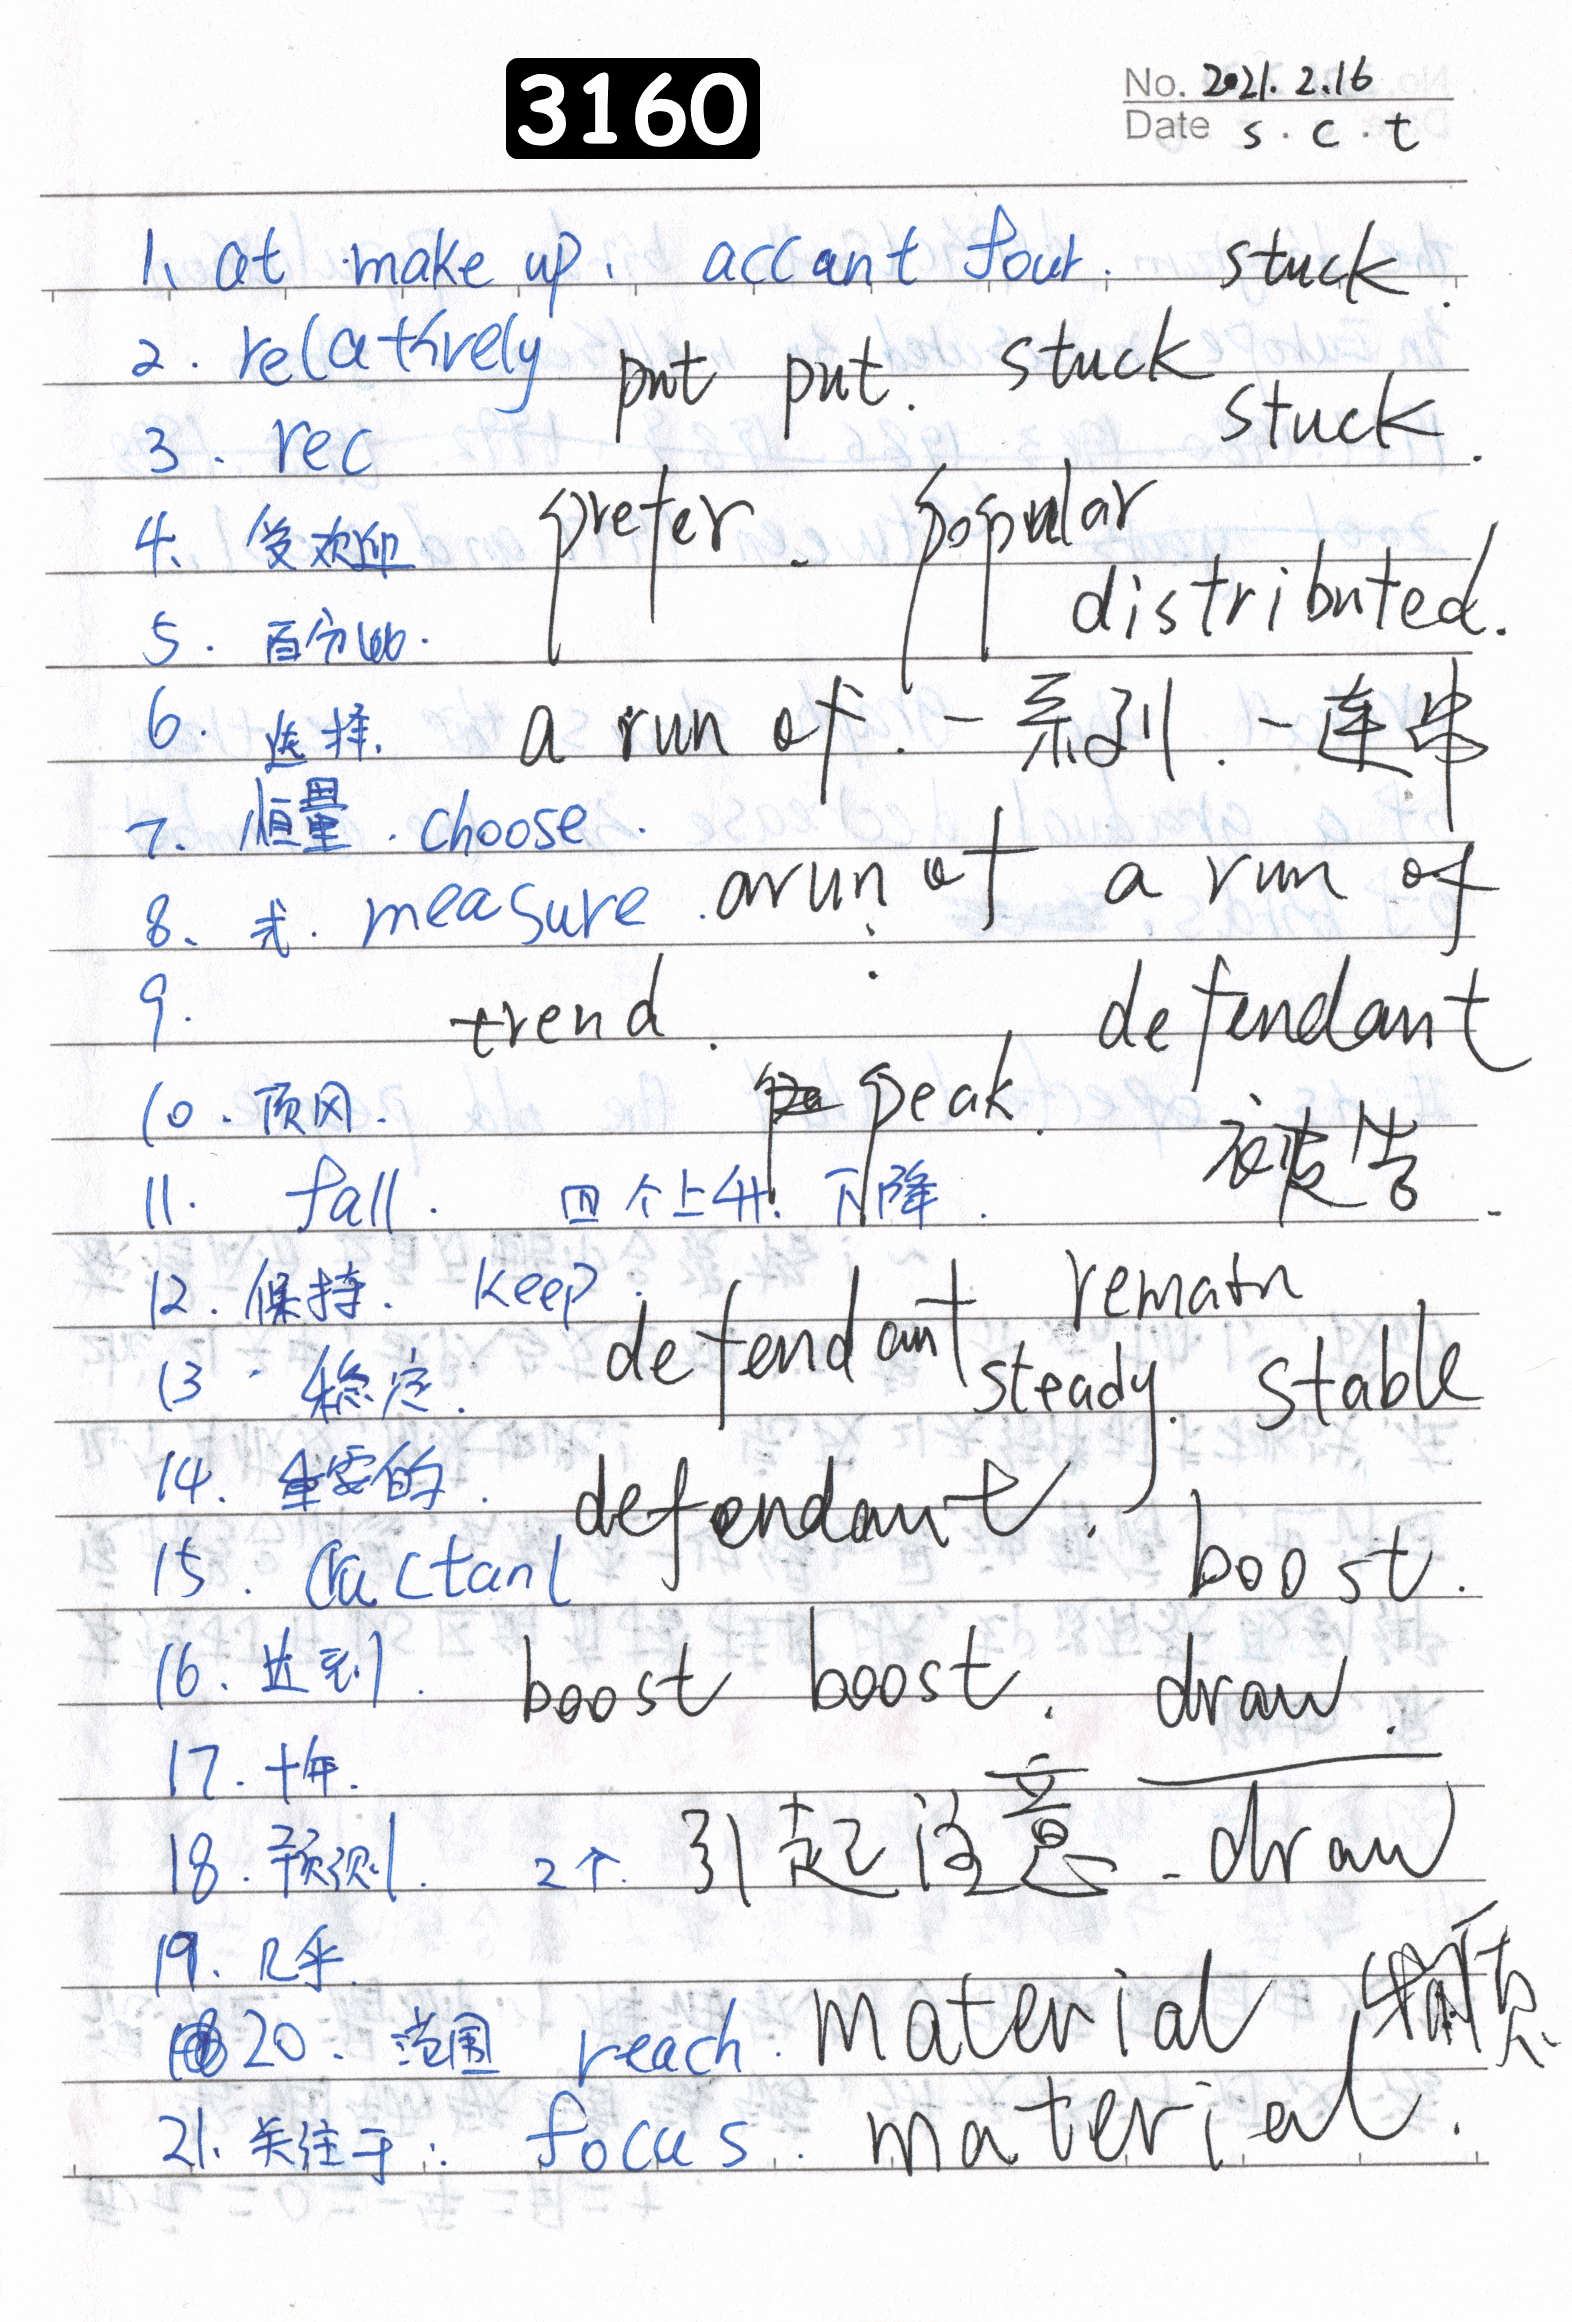 3160
No. 2021. 2.16
Date s. c. t
1、at make up. accant four. stuck.
2. relatively put put. stuck
3. rec stuck.
4、受欢迎 prefer. popular
5. 百分比. distributed.
6. 选择. a run of. 一系列. 一连串
7. 恒量. choose.
8、求. measure. a run of a run of
9. trend. defendant
10. 顶风. peak.
11. fall. 四个上升. 下降. 被告.
12. 保持. keep. remain
13. 稳定. defendant steady. stable
14. 重要的. defendant.
15. Cructanl boost.
16. 达到. boost boost. draw.
17. 十年.
18. 预测. 2个. 引起注意. draw
19. 几乎.
20. 范围 reach. material
21. 关注于: focus. material.